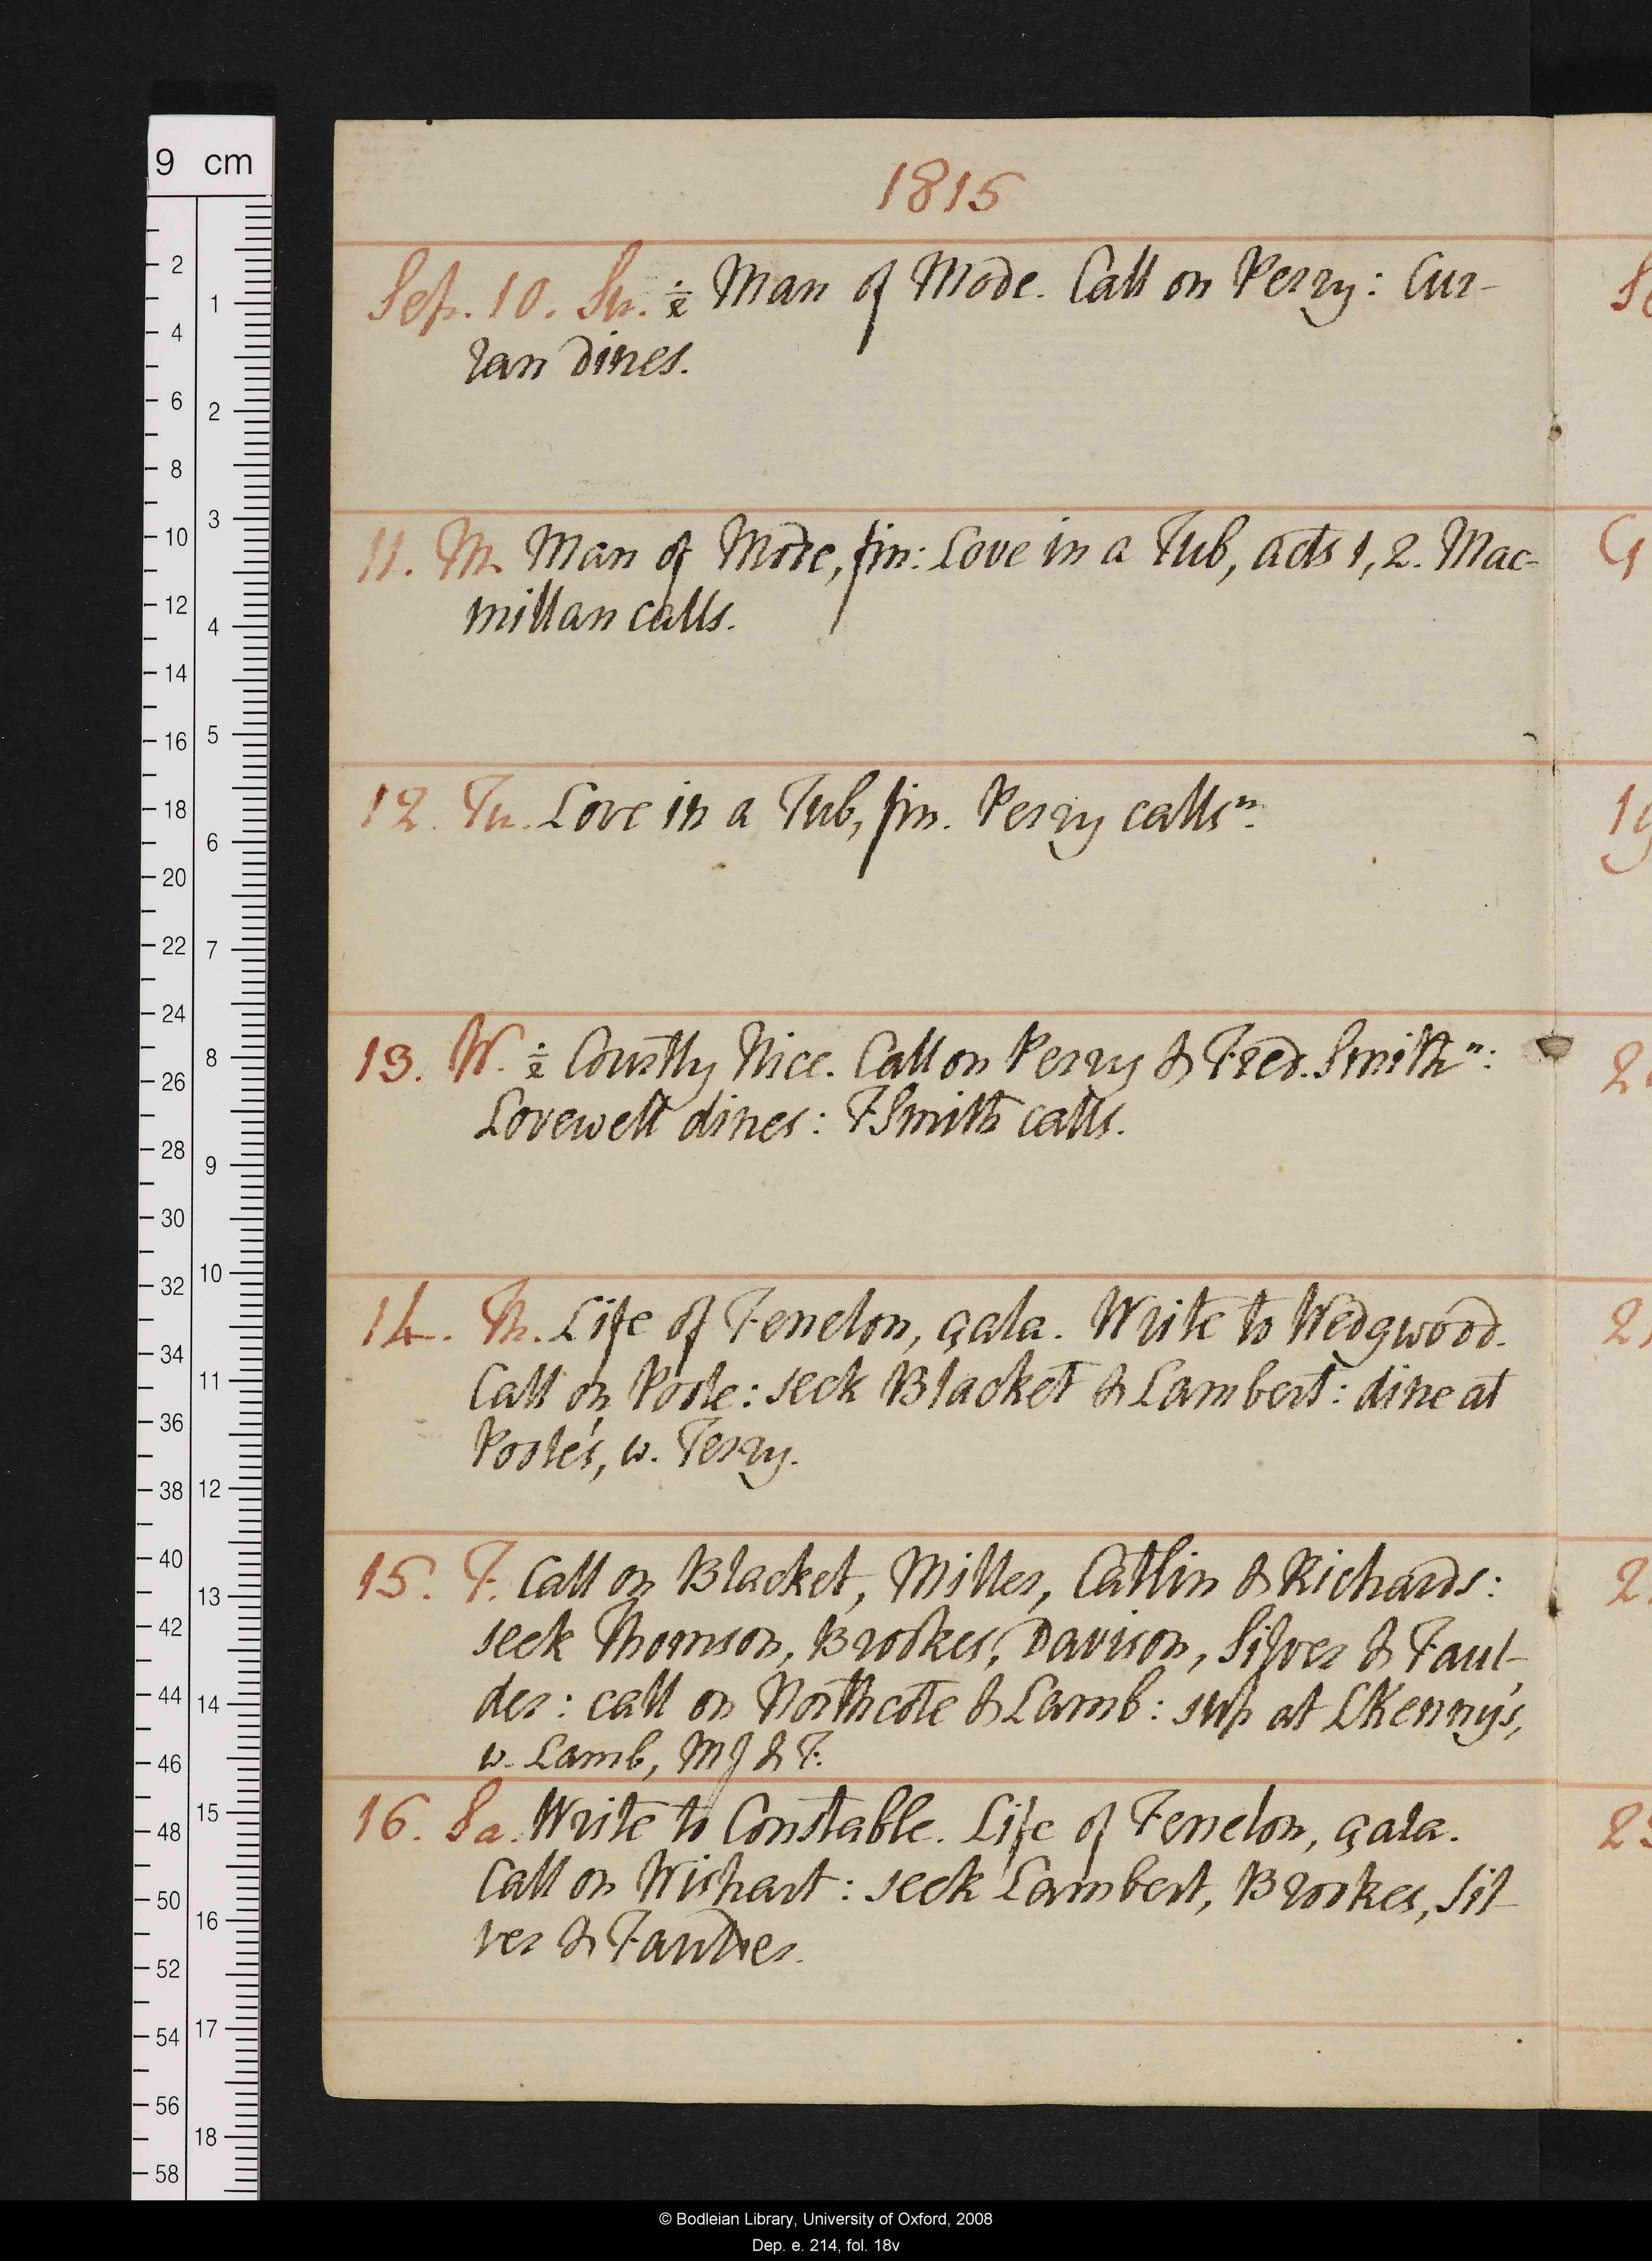 9 cm
1815
Sep. 10. Su. ½ Man of Mode. Call on Perry: Cur-
ran dines.
11. M. Man of Mode, fin: Love in a Tub, acts 1, 2. Mac-
millan calls.
12. Tu. Love in a Tub, fin. Perry calls n.
13. W. ½ Courtly Nice. Call on Perry & Fred. Smith n:
Lovewell dines: F Smith calls.
14. Th. Life of Fenelon, çala. Write to Wedgwood.
Call on Poole: seek Blacket & Lambert: dine at
Poole's, w. Terry.
15. F. Call on Blacket, Miller, Catlin & Richards:
seek Thomson, Brookes, Davison, Silver & Faul-
der: call on Northcote & Lamb: sup at LKenny's,
w. Lamb, MJ & F.
16. Sa. Write to Constable. Life of Fenelon, çala.
Call on Wishart: seek Lambert, Brookes, Sil-
ver & Faulder.
© Bodleian Library, University of Oxford, 2008
Dep. e. 214, fol. 18v